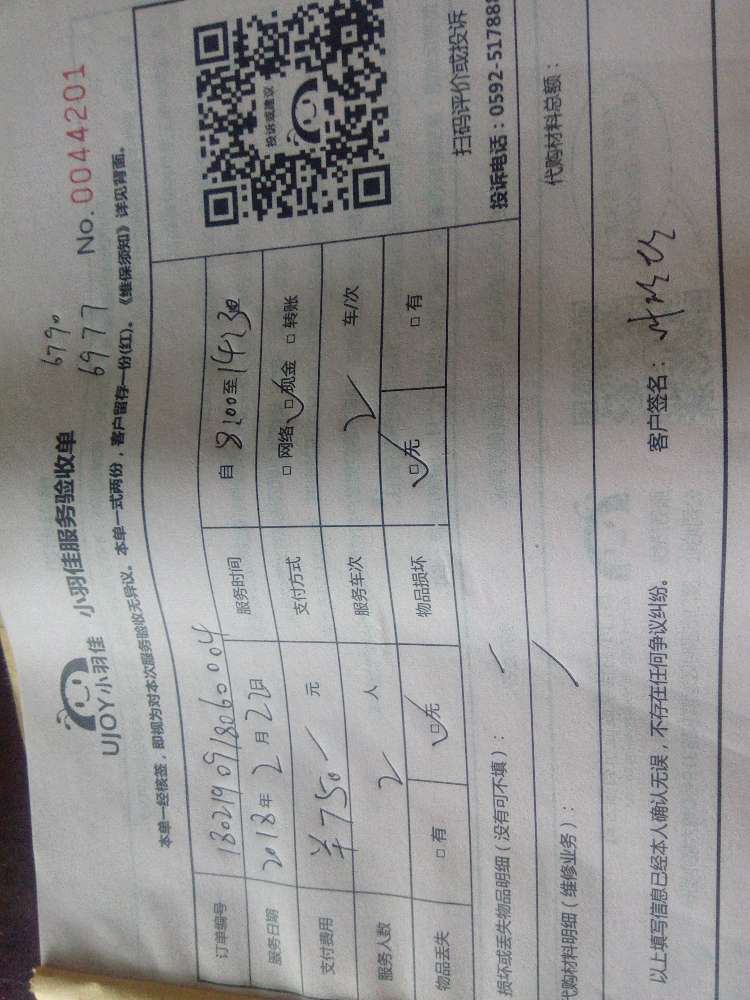 UJOY小羽佳 小羽佳服务验收单
6790
6977
No. 0044201
本单一经核签，即视为对本次服务验收无异议。本单一式两份，客户留存一份(红)。《维保须知》详见背面。
订单编号 1802190918060004 服务时间 自 8:00至14:30
服务日期 2018年2月22日 支付方式 □网络 □现金 □转账
支付费用 ¥750 元 服务车次 2 车/次
服务人数 2 人
物品丢失 □有 □无 物品损坏 □无 □有
投诉或建议
扫码评价或投诉
投诉电话：0592-517888
损坏或丢失物品明细（没有可不填）：
代购材料明细（维修业务）： 代购材料总额：
以上填写信息已经本人确认无误，不存在任何争议纠纷。 客户签名：